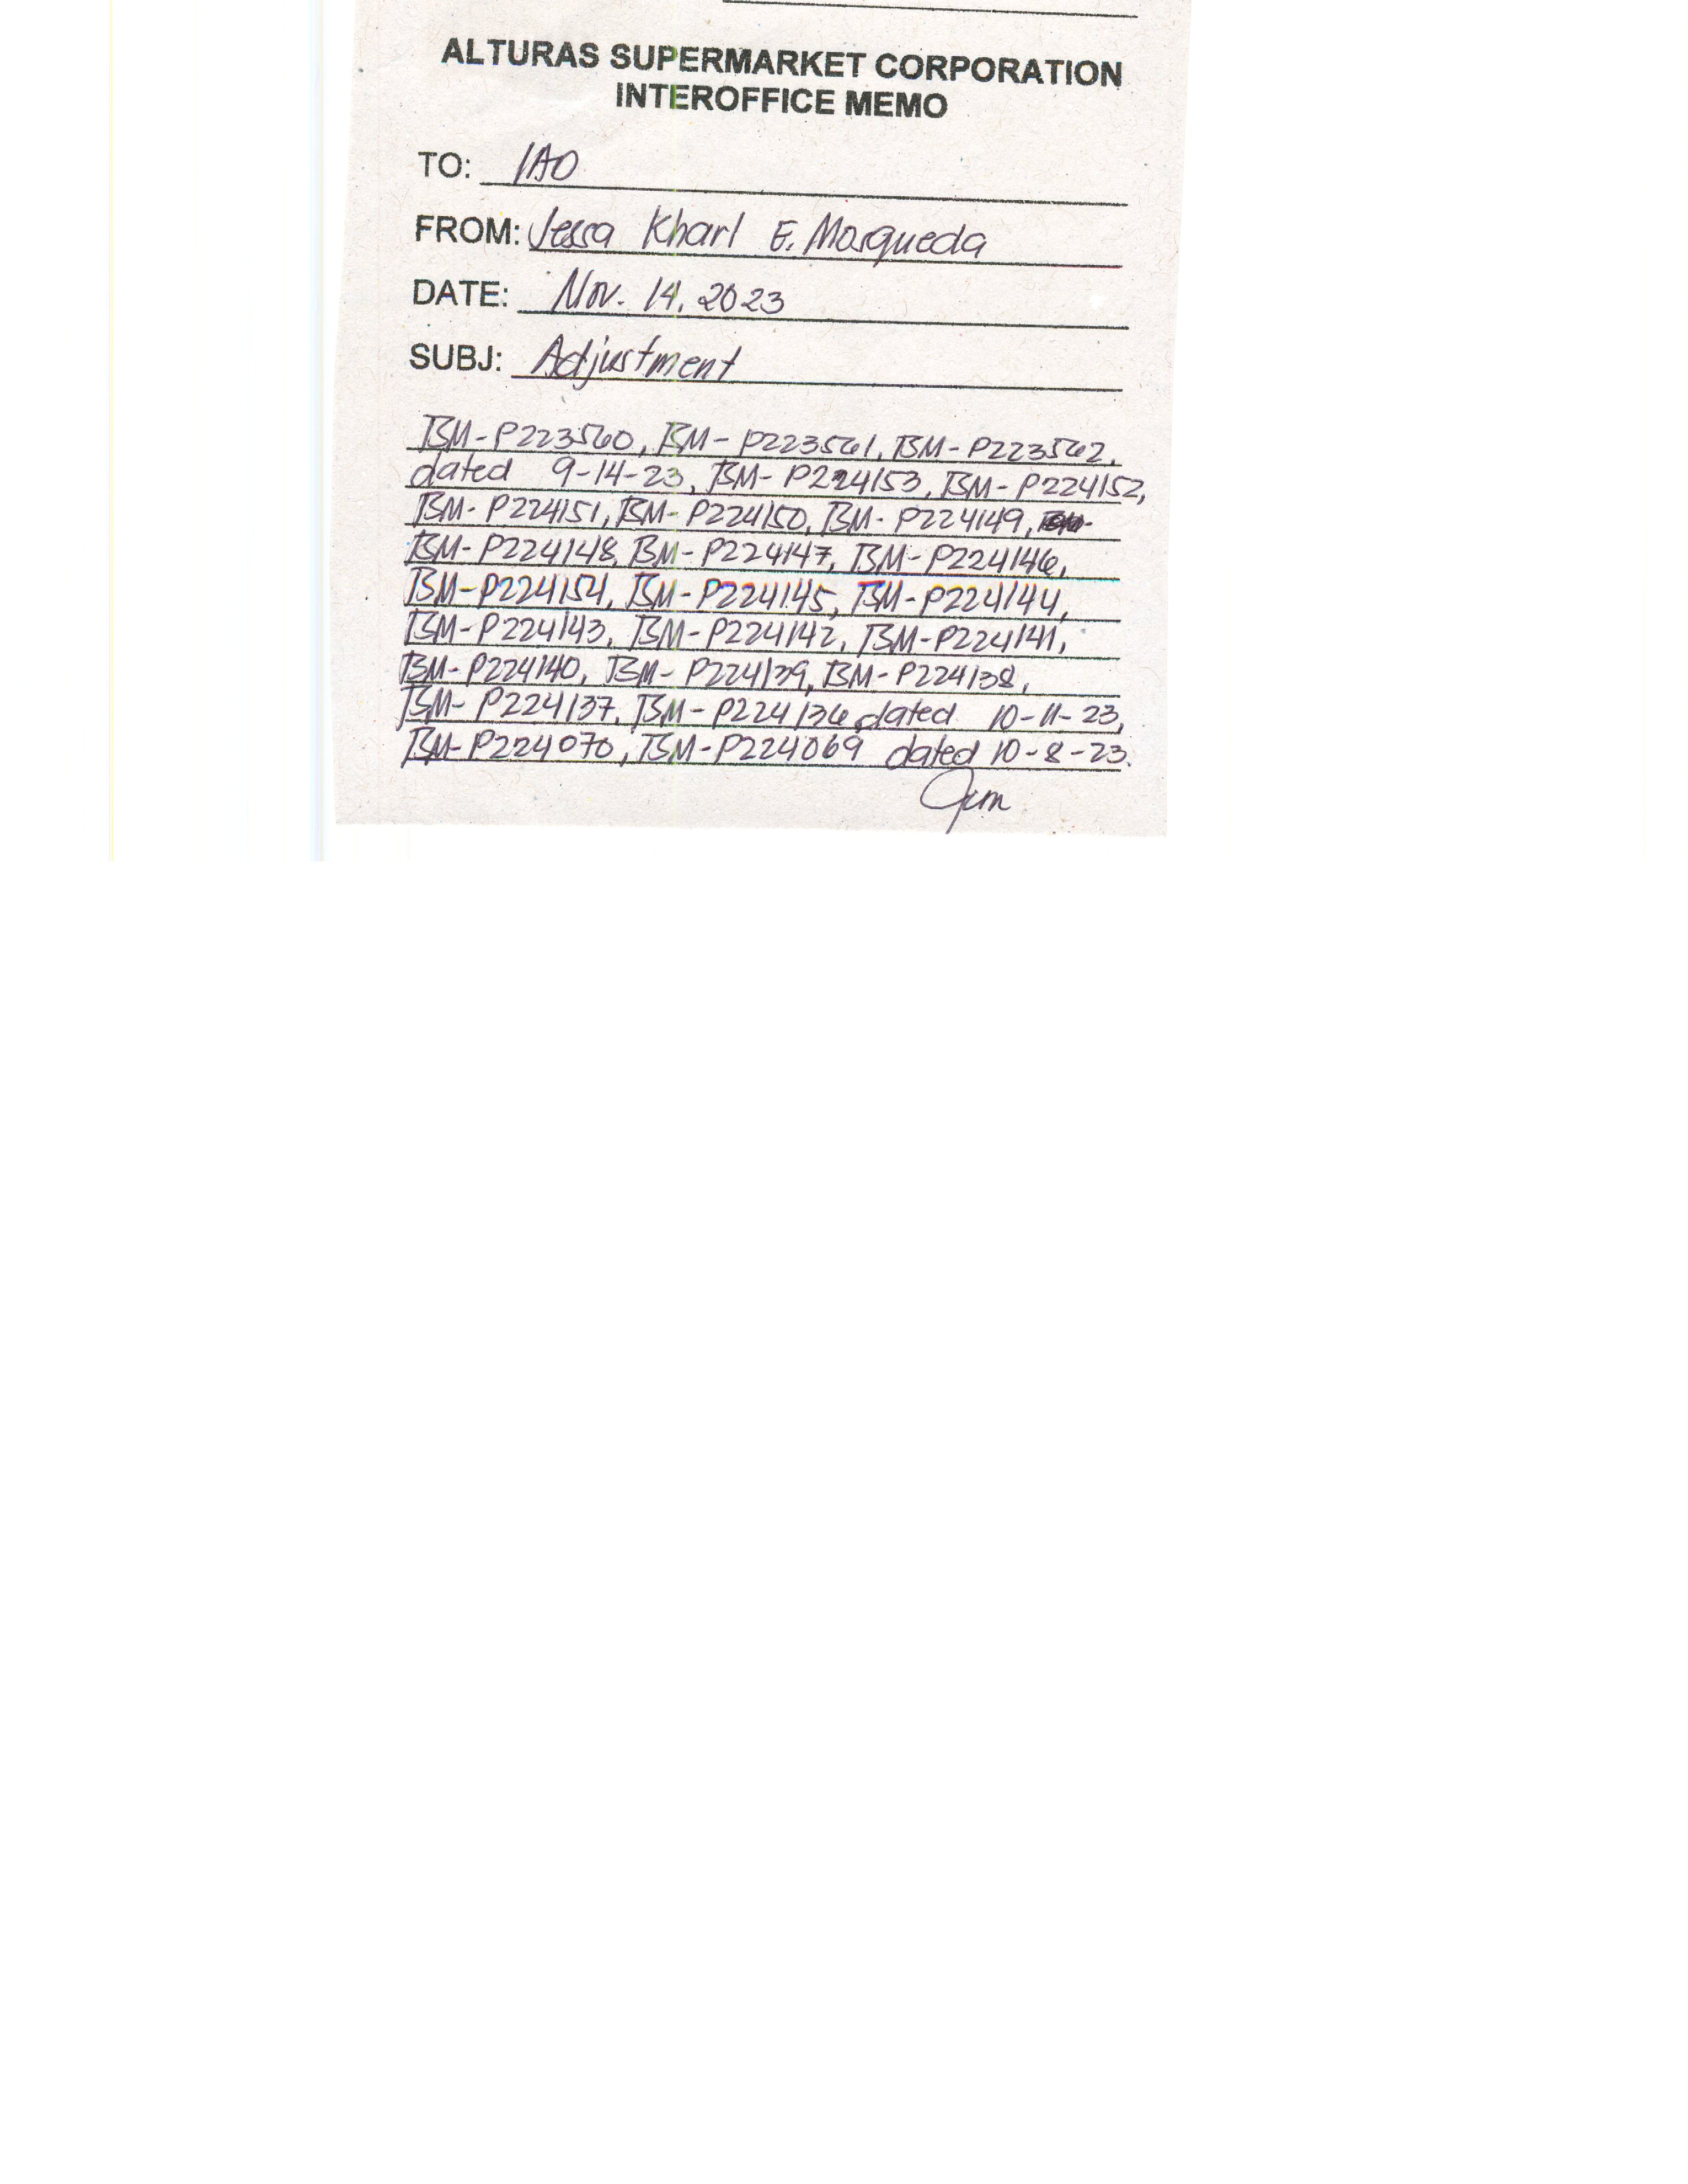 ALTURAS SUPERMARKET CORPORATION
INTEROFFICE MEMO
TO: IAO
FROM: Jessa Kharl E. Mosqueda
DATE: Nov. 14, 2023
SUBJ: Adjustment
BM-P223560, BM-P223561, BM-P223562,
dated 9-14-23, BM-P224153, BM-P224152,
BM-P224151, BM-P224150, BM-P224149,
BM-P224148, BM-P224147, BM-P224146,
BM-P224154, BM-P224145, BM-P224144,
BM-P224143, BM-P224142, BM-P224141,
BM-P224140, BM-P224139, BM-P224138,
BM-P224137, BM-P224136 dated 10-11-23,
BM-P224070, BM-P224069 dated 10-8-23.